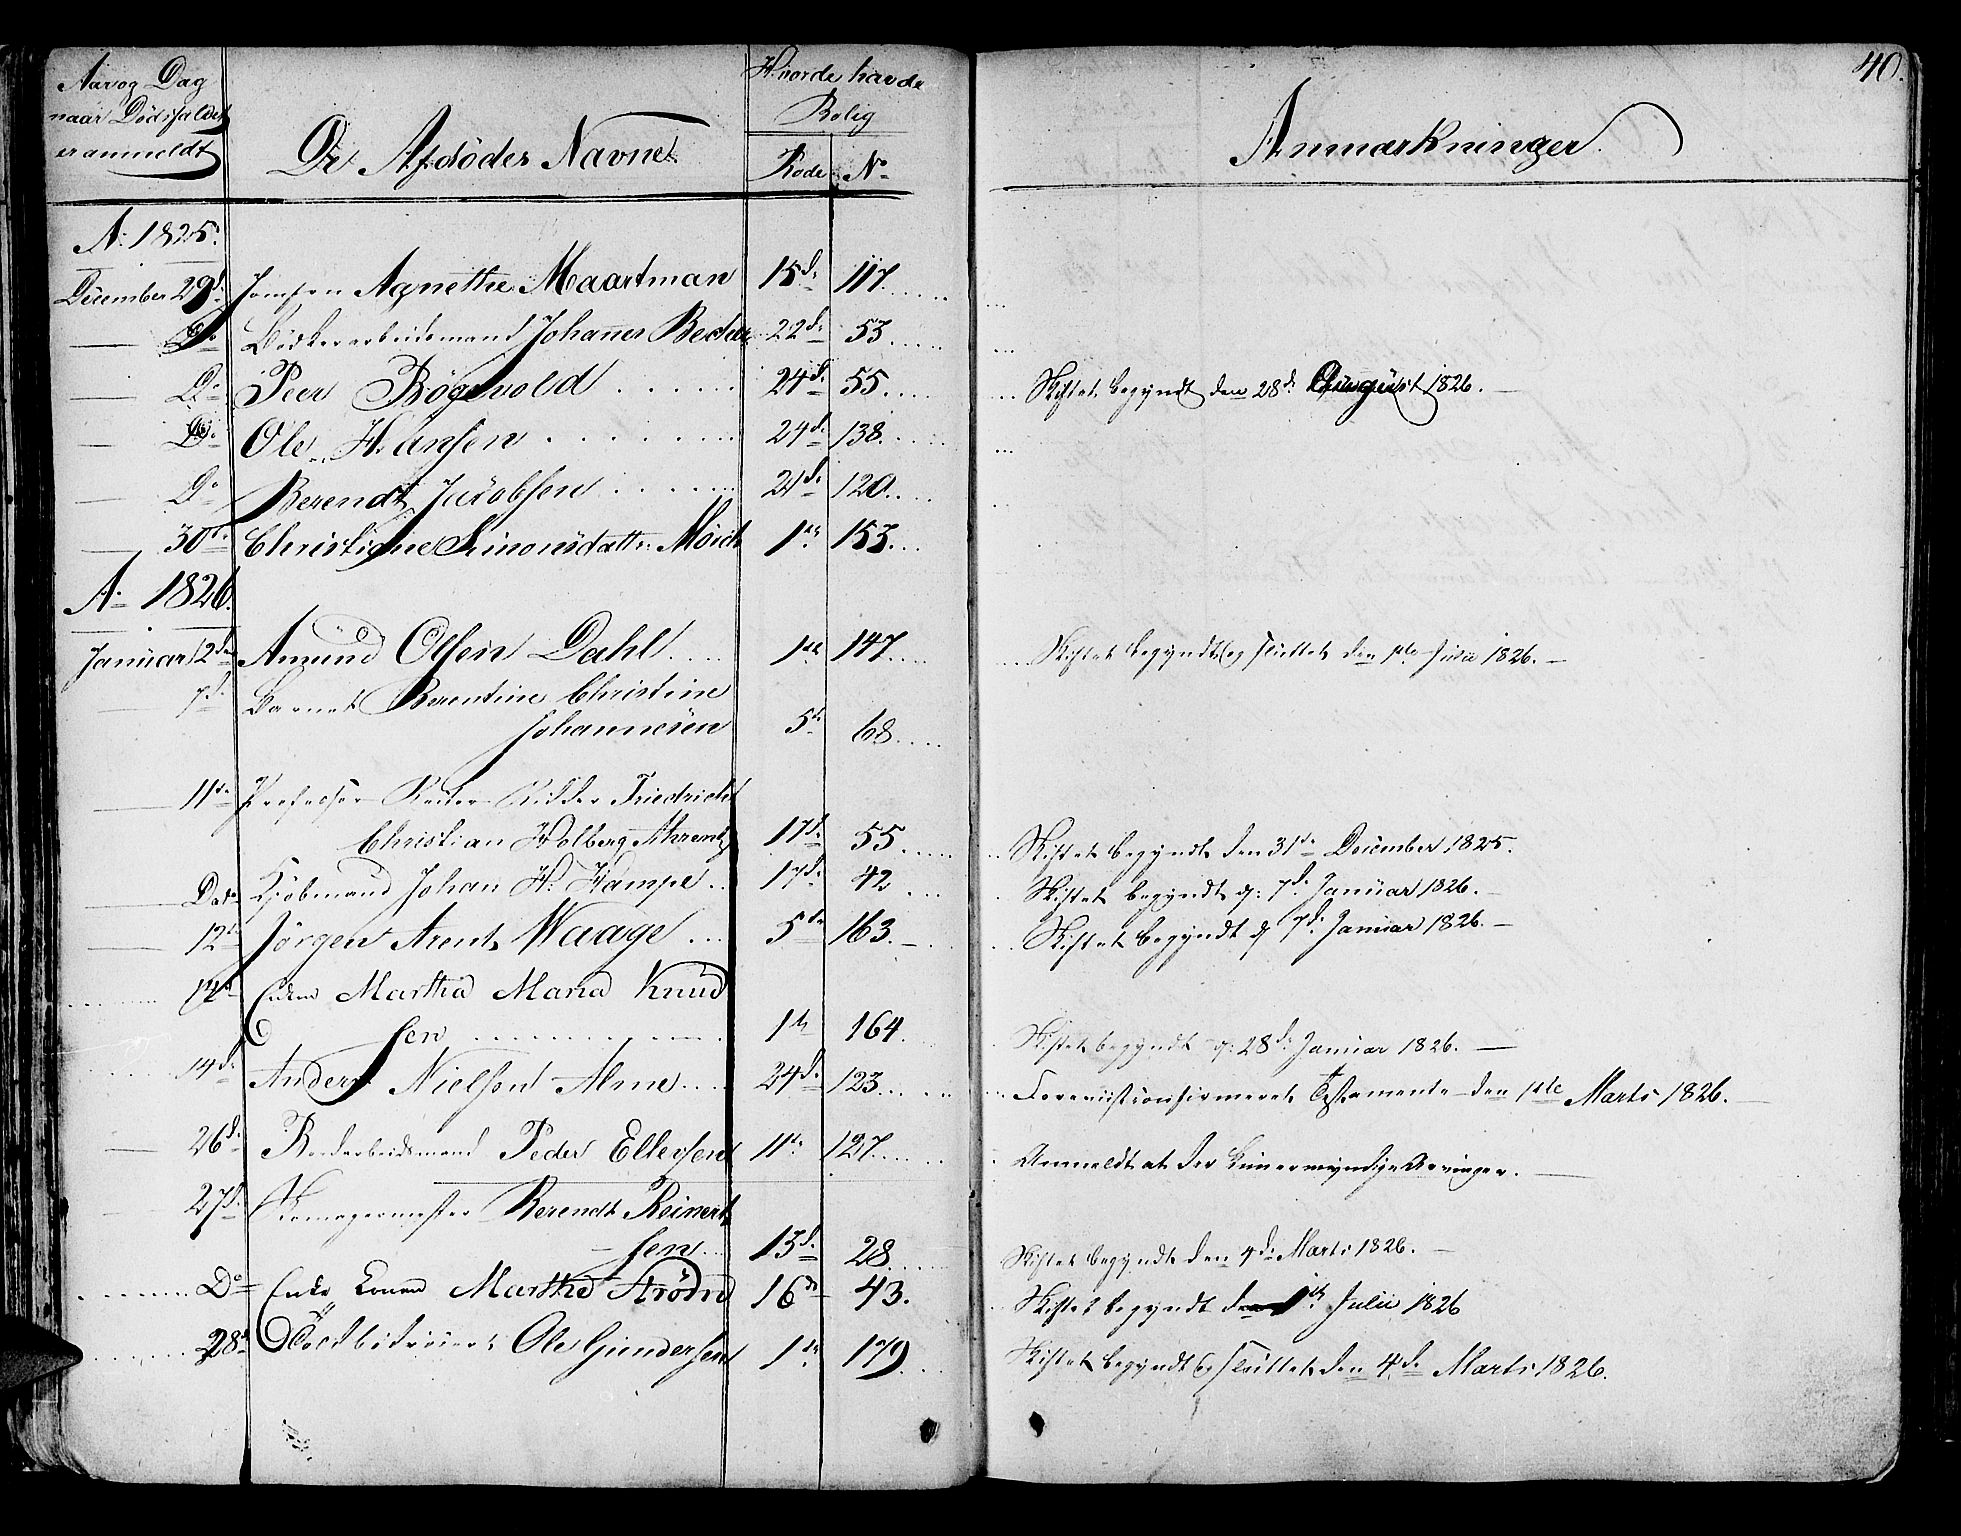 40.
Aar og Dag
naar Dödsfaldet
er anmeldt
De Afdödes Navne
Hvor de havde
Bolig
Rode No
Anmærkninger.
Ao 1825.
December 29de Jomfru Agnethe Maartman 15de 117
Do Bödkerarbeidsmand Johannes Becker 22de 53
Do Peer Bögevold 24de 55 Skiftet begyndt den 28de August 1826.
Do Ole Hansen 24de 138
Do Berendt Jacobsen 24de 120
30te Christiane Simonsdatter 1te 153
Ao 1826.
Januar 2den Amund Olsen Dahl 1te 147 Skiftet begyndt og sluttet den 1ste Julii 1826.
7de Barnet Berentine Christine
Johannesen 5te 68
11te Professor Rector Ridder Friedrich
Christian Holberg Ahrentz 17de 55 Skiftet begyndt den 31te December 1825.
Dato Kjöbmand Johan H. Kampe 17de 42 Skiftet begyndt d: 7de Januar 1826.
12te Jörgen Arent Waage 5te 163. Skiftet begyndt d 7de Januar 1826.
Enken Martha Maria Knud
sen 1te 164 Skiftet begyndt d: 28de Januar 1826.
14de Anders Nielsen Alme 24de 123 Testamente den 1ste Marts 1826.
26de Peder Ellersen 11te 127 Anmeldt at der kun er myndige Arvinger.
27de Berendt Reinert
sen 13de 28 Skiftet begyndt den 4de Marts 1826.
Do Enke Konen Martha Strödm 16de 43. Skiftet begyndt den 1te Julii 1826
28de Toldbetient Ole Gundersen 1te 179 Skiftet begyndt og sluttet den 4de Marts 1826.